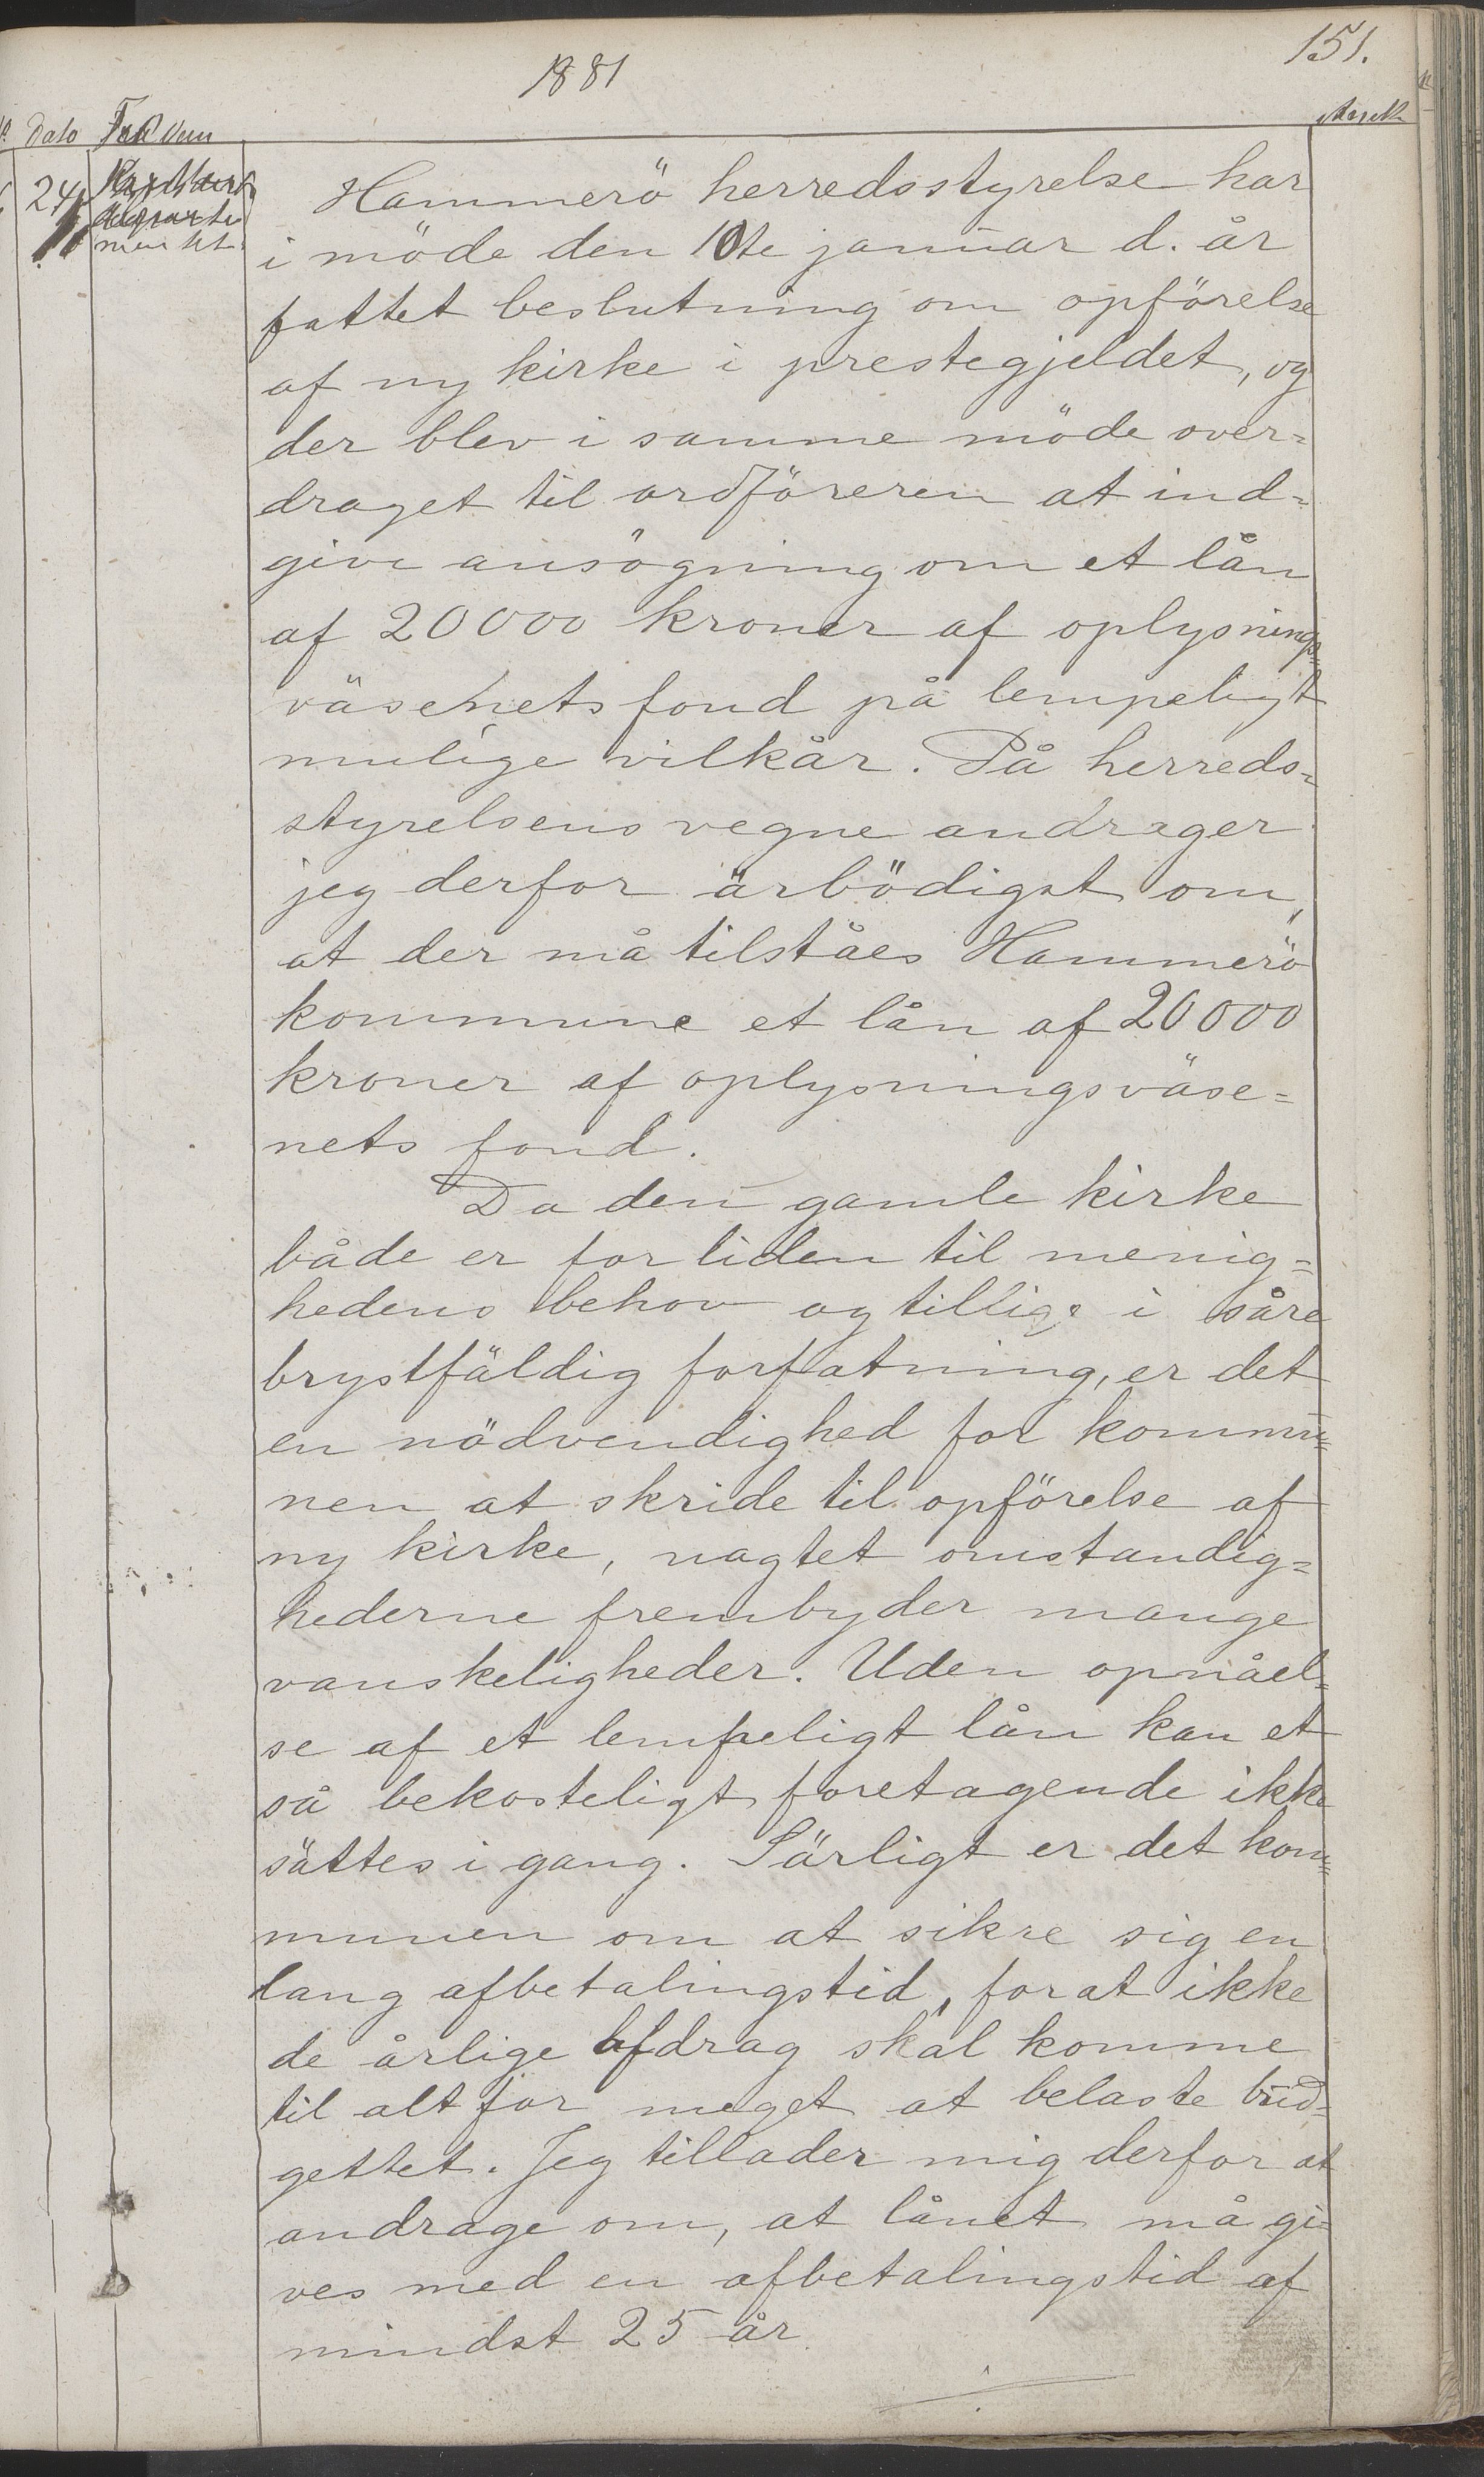 151.
1881
Dato
24/1
departe
mentet
Hammerö herredsstyrelse har
i möde den 10te januar d. år
fattet beslutning om opförelse
af ny kirke i prestegjeldet, og
der blev i samme möde over=
draget til ordföreren at ind=
give ansögning om et lån
af 20000 kroner af oplysnings=
väsenets fond på lempeligt
mulige vilkår. På herreds=
styrelsens vegne andrager
jeg derfor ärbödigst om,
at der må tilståes Hammerö
kommune et lån af 20000
kroner af oplysningsväse=
nets fond.
Da den gamle kirke
både er for liden til menig=
hedens behov og tillige i såre
brystfäldig forfatning, er det
en nödvendighed for kommu=
nen at skride til opförelse af
ny kirke, uagtet omstandig=
hederne frembyder mange
vanskeligheder. Uden opnåel=
se af et lempeligt lån kan et
så bekosteligt foretagende ikke
sättes i gang. Särligt er det kom=
munen om at sikre sig en
lang afbetalingstid, forat ikke
de årlige afdrag skal komme
til alt for meget at belaste bud=
gettet. Jeg tillader mig derfor at
andrage om, at lånet må gi=
ves med en afbetalingstid af
mindst 25 år